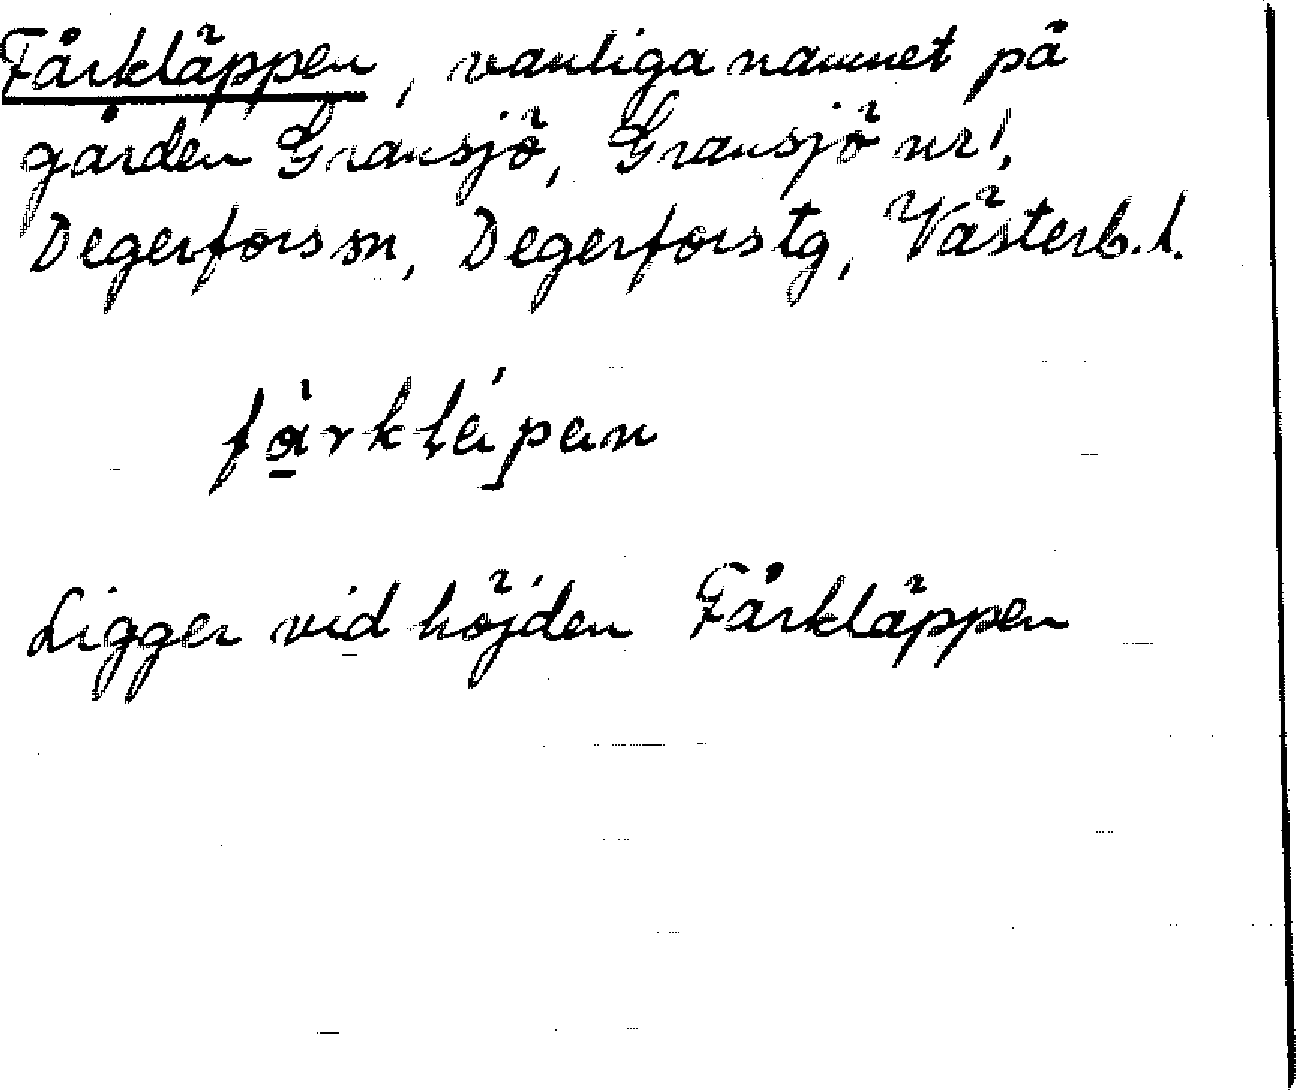 Fårkläppen, vanliga namnet på
gården Gransjö, Gransjö nr 1,
Degerfors sn, Degerfors tg, Västerb. l.
Ligger vid höjden Fårkläppen